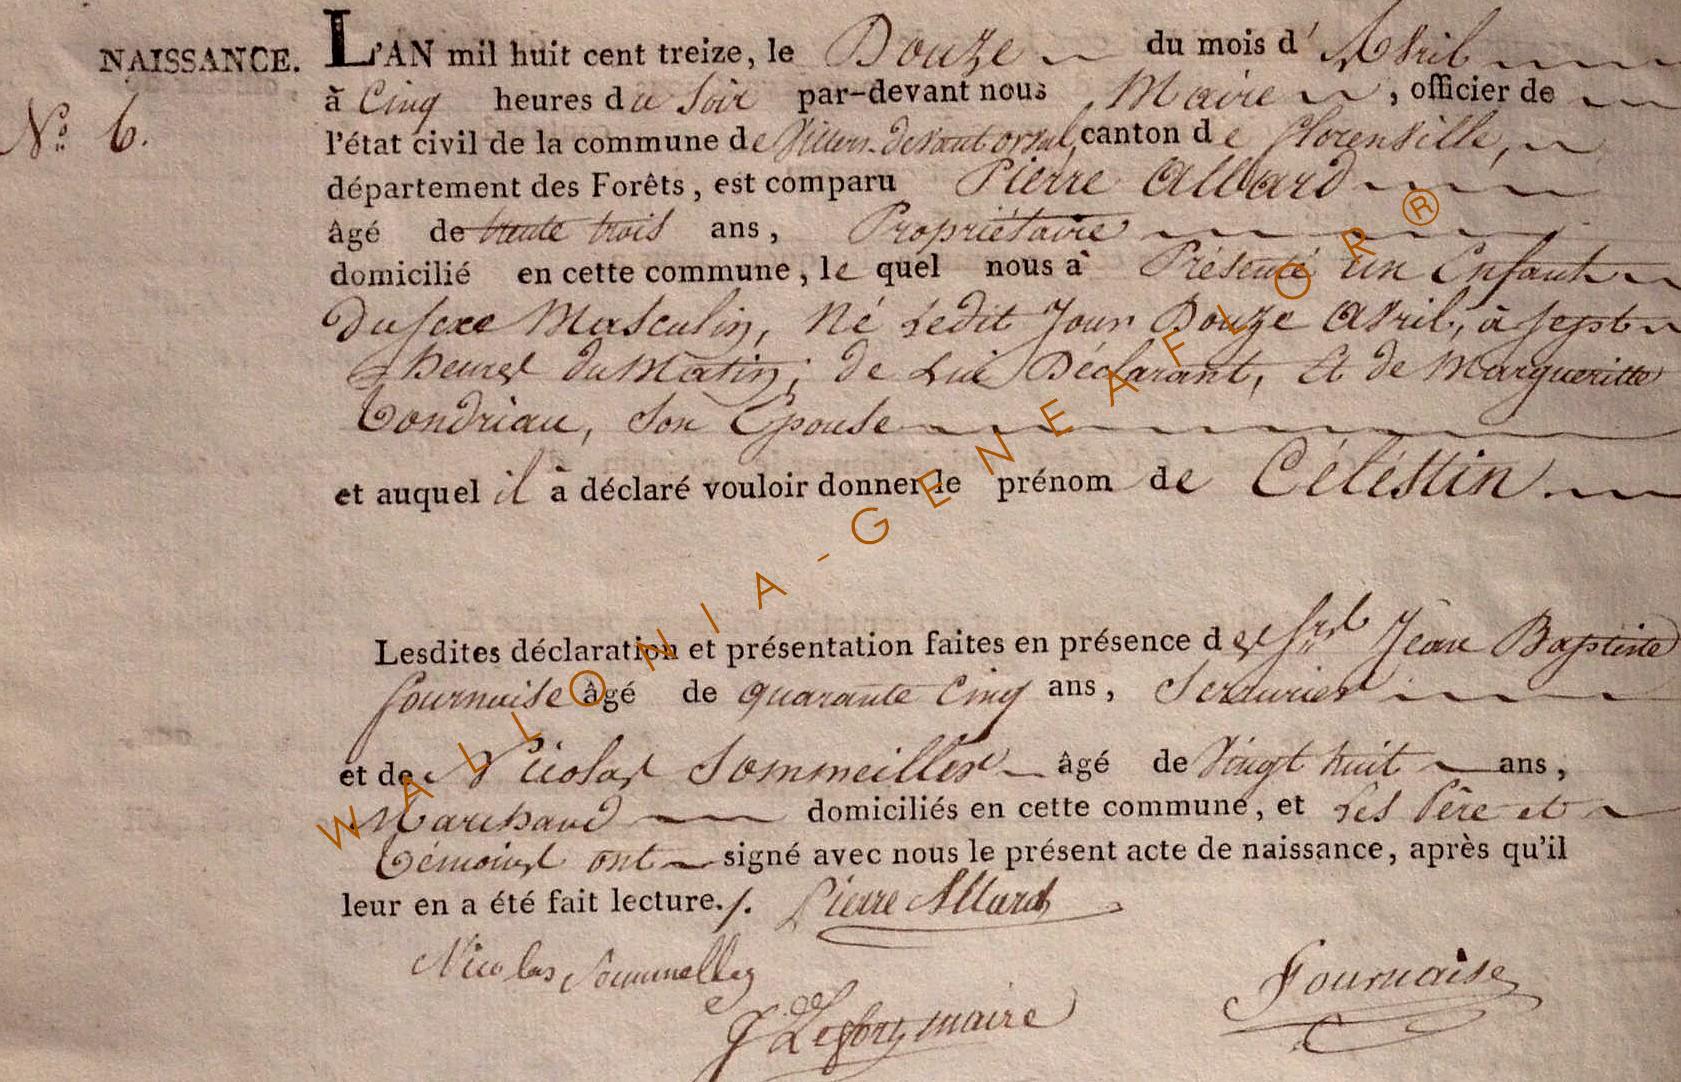 NAISSANCE.
N.º 6.
L'AN mil huit cent treize, le Douze du mois d' Avril
à Cinq heures du Soir par-devant nous Maire, officier de
l'état civil de la commune de Villers-devant orval, canton de florenville,
département des Forêts, est comparu Pierre Allard
âgé de trente trois ans, Propriétaire
domicilié en cette commune, le quel nous à Présenté un Enfant
Du sexe Masculin, Né Ledit Jour Douze Avril, à sept
heures du Matin; de Lui Déclarant, Et de Margueritte
Tondriau, son Epouse
et auquel il à déclaré vouloir donner le prénom de Céléstin.
Lesdites déclaration et présentation faites en présence des Srs Jean Baptiste
fournaise âgé de quarante Cinq ans, Serrurier
et de Nicolas Sommeiller âgé de Vingt huit ans,
Marchand domiciliés en cette commune, et Les Père et
Témoins ont signé avec nous le présent acte de naissance, après qu'il
leur en a été fait lecture./. Pierre Allard
Nicolas
Fournaise
maire
WALLONIA-GENEAFLOR®